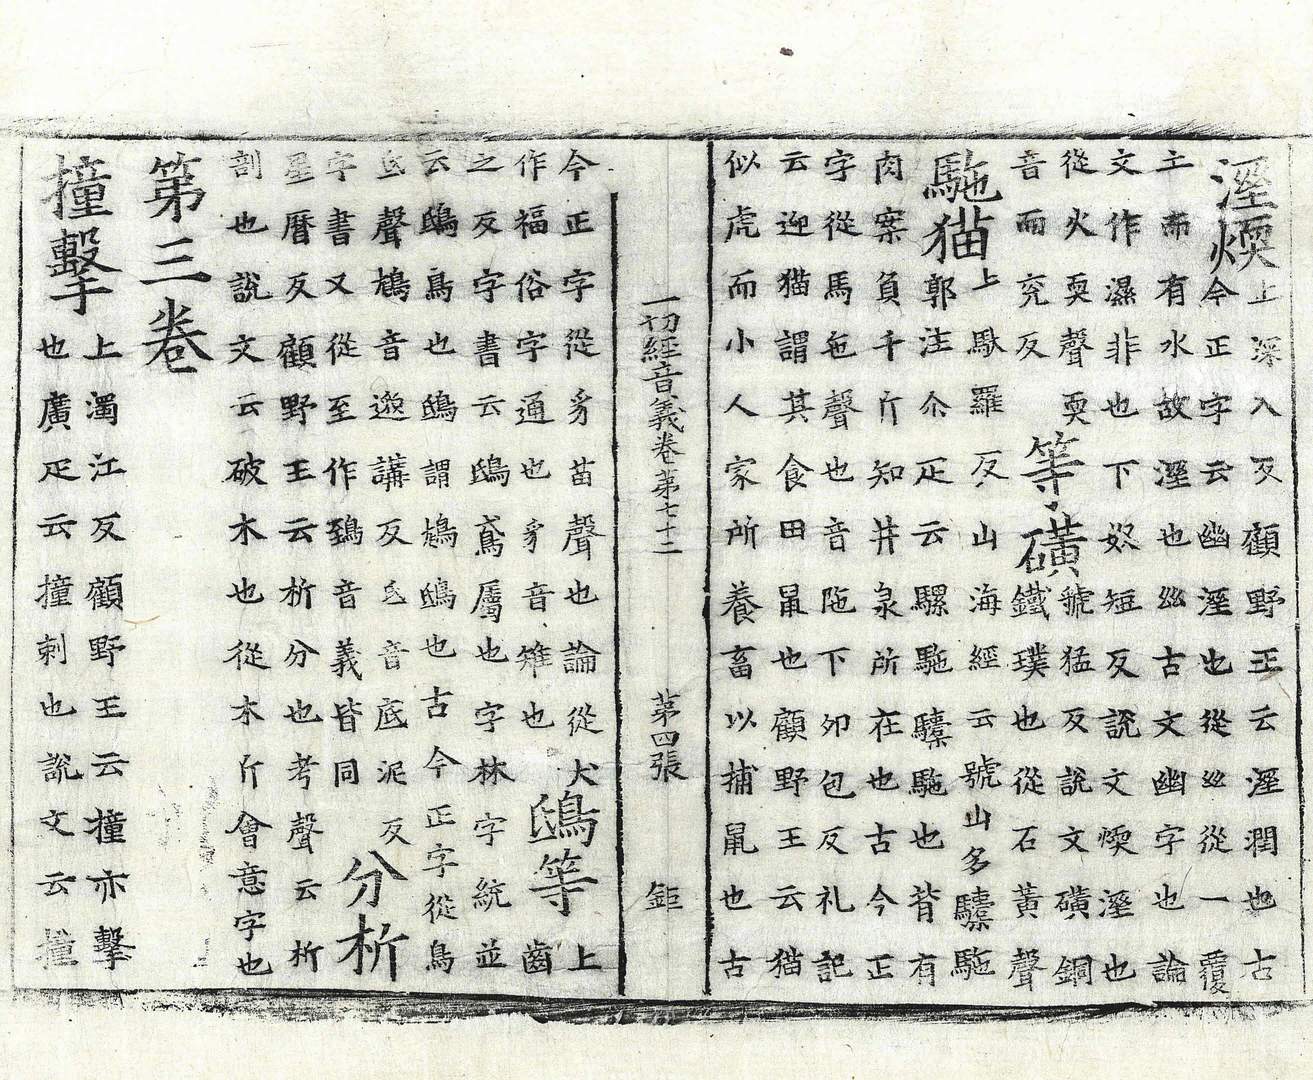 溼煗上深入反顧野王云溼潤也古
今正字云幽溼也從𢆶從一覆
土而有水故溼也𢆶古文幽字也論
文作濕非也下奴短反說文煗溼也
從火耎聲耎
音而兖反等礦虢猛反說文礦銅
鐵璞也從石黃聲
馳猫上馱羅反山海經云號山多驝馳
郭注尒疋云騾馳驝馳也背有
肉案負千斤知井泉所在也古今正
字從馬㐌聲也音陁下卯包反礼記
云迎猫謂其食田鼠也顧野王云猫
似虎而小人家所養畜以捕鼠也古
一切經音義卷第七十二 第四張 鉅
今正字從豸苗聲也論從犬
作猫俗字通也豸音雉也鴟等上齒
之反字書云鴟鳶屬也字林字統並
云鴟鳥也鴟謂鵄鴟也古今正字從鳥
氐聲鵄音邀講反氐音底泥反
字書又從至作鵄音義皆同分析
星曆反顧野王云析分也考聲云析
剖也說文云破木也從木斤會意字也
第三卷
撞擊上濁江反顧野王云撞亦擊
也廣疋云撞刺也說文云撞